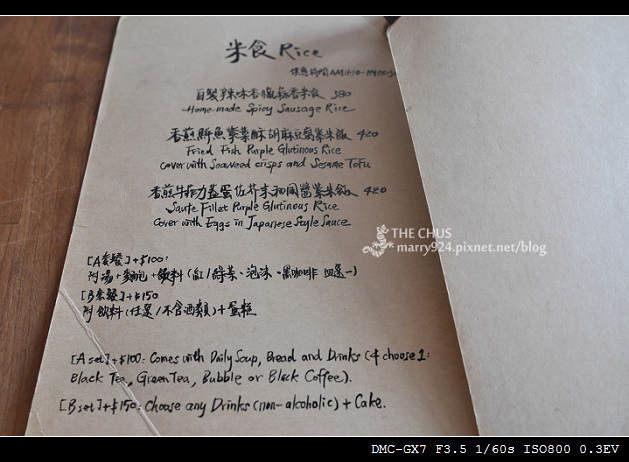 米食 Rice
供應時間 AM11:30-PM20:30
自製辣味香腸蒜香米飯 380
Home-made Spicy Sausage Rice
香煎鮮魚紫菜酥胡麻豆腐紫米飯 420
Fried Fish Purple Glutinous Rice
cover with Seaweed crisps and Sesame Tofu
香煎牛菲力蓋蛋佐芥末和風醬紫米飯 420
Saute Fillet Purple Glutinous Rice
Cover with Eggs in Japanese Style Sauce
[A套餐]+$100:
附湯+麵包+飲料(紅/綠茶、泡沫、黑咖啡 四選一)
[B套餐]+$150
附 飲料(任選/不含酒類)+蛋糕
[A set]+$100: Comes with Daily Soup, Bread and Drinks (4 choose 1:
Black Tea, Green Tea, Bubble or Black Coffee).
[B set]+$150: Choose any Drinks (non-alcoholic) + Cake.
THE CHUS
marry924.pixnet.net/blog
DMC-GX7 F3.5 1/60s ISO800 0.3EV